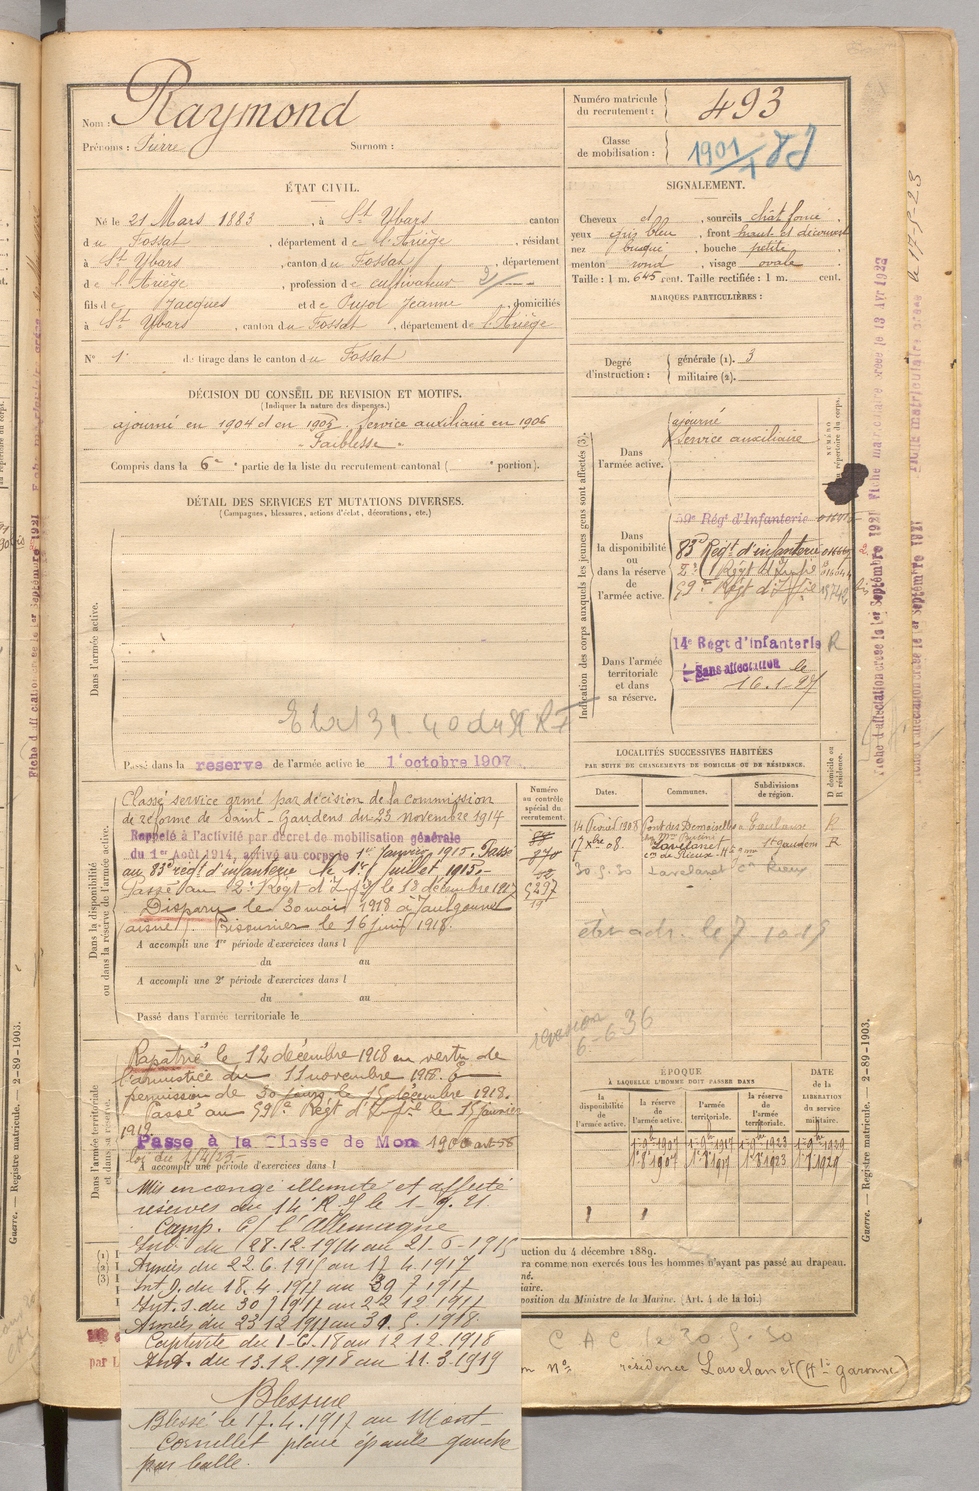 Nom : Raymond
Prénoms : Pierre Surnom :
Numéro matricule du recrutement : 493
Classe de mobilisation : 1901
ÉTAT CIVIL.
Né le 21 Mars 1883, à St Ybars canton
du Fossat, département de l'Ariège, résidant
à St Ybars, canton du Fossat, département
de l'Ariège, profession de cultivateur
fils de Jacques et de Pujol Jeanne, domiciliés
à St Ybars, canton du Fossat, département de l'Ariège
N° 1 de tirage dans le canton du Fossat
SIGNALEMENT.
Cheveux dt, sourcils chât foncé.
yeux gris bleu, front haut et découvert
nez busqué, bouche petite
menton rond, visage ovale
Taille : 1 m. 645 cent. Taille rectifiée : 1 m. cent.
MARQUES PARTICULIÈRES :
Degré d'instruction : générale (1). 3
militaire (2).
DÉCISION DU CONSEIL DE REVISION ET MOTIFS.
(Indiquer la nature des dispenses.)
ajourné en 1904 et en 1905. Service auxiliaire en 1906
"Faiblesse"
Compris dans la 6e partie de la liste du recrutement cantonal ( e portion).
DÉTAIL DES SERVICES ET MUTATIONS DIVERSES.
(Campagnes, blessures, actions d'éclat, décorations, etc.)
Dans l'armée active.
Passé dans la reserve de l'armée active le 1 octobre 1907
Indication des corps auxquels les jeunes gens sont affectés (3).
Dans l'armée active.
ajourné
Service auxiliaire
Dans la disponibilité ou dans la réserve de l'armée active.
59e Régt d'Infanterie
83e Régt d'infanterie
2e Régt d'Infie
59e Régt d'Infie
Dans l'armée territoriale et dans sa réserve.
14e Régt d'Infanterie R
Sans affectation le
16.1.27
Dans la disponibilité ou dans la réserve de l'armée active.
Classé service armé par décision de la commission
de réforme de Saint-Gaudens du 23 novembre 1914
Rappelé à l'activité par décret de mobilisation générale
du 1er Août 1914, arrivé au corps le 1er Janvier 1915. Passé
au 83e régt d'infanterie le 1er Juillet 1915.
Passé au 2e Régt d'Infie le 13 décembre 1917
Disparu le 30 mai 1918 à Jaulgonne
(aisne). Prisonnier le 16 juin 1918.
A accompli une 1re période d'exercices dans l
du au
A accompli une 2e période d'exercices dans l
du au
Passé dans l'armée territoriale le
Numéro au contrôle spécial du recrutement.
LOCALITÉS SUCCESSIVES HABITÉES
PAR SUITE DE CHANGEMENTS DE DOMICILE OU DE RÉSIDENCE.
Dates. Communes. Subdivisions de région. D domicile ou R résidence.
14 Février 1908 Pont des Demoiselles Toulouse R
17 Xbre 08. Lavelanet St Gaudens R
cne de Rieux
30.5.30 Lavelanet cn Rieux
révision
6-6.36
Dans l'armée territoriale et dans sa réserve.
Rapatrié le 12 décembre 1918 en vertu de
l'armistice du 11 novembre 1918. En
permission de 30 jours le 15 décembre 1918.
Passé au 59e Régt d'Infie le 15 janvier
1919.
Passé à la Classe de Mon 1900 art 58
loi du 1/4/23
A accompli une période d'exercices dans l
ÉPOQUE
À LAQUELLE L'HOMME DOIT PASSER DANS
la disponibilité de l'armée active. la réserve de l'armée active. l'armée territoriale. la réserve de l'armée territoriale. DATE de la LIBÉRATION du service militaire.
1er 8bre 1907 1er 8bre 1917 1er 8bre 1923 1er 8bre 1929
Mis en congé illimité et affecté
réserves du 14e R.I. le 1-9.21
Camp. C/ l'Allemagne
Int. du 28.12.1914 au 21-6-1915
Armées du 22.6.1915 au 17.4.1917
Int. B. du 18.4.1917 au 29 7 1917
Int. S. du 30 7 1917 au 22 12 1917
Armées du 23 12 1917 au 31.5.1918.
Captivité du 1-6.18 au 12 12 1918
Int. du 13.12.1918 au 11.3.1919
Blessure
Blessé le 17.4.1917 au Mont
Cornillet plaie épaule gauche
par balle.
uction du 4 décembre 1889.
ra comme non exercés tous les hommes n'ayant pas passé au drapeau.
osition du Ministre de la Marine. (Art. 4 de la loi.)
C A C le 30.5.30
résidence Lavelanet (Hte garonne)
Guerre. — Registre matricule. — 2-89-1903.
Fiche d'affectation créée le 1er Septembre 1921
Fiche matriculaire créée le 13 Avr 1923
Fiche matriculaire créée le 17-5-23